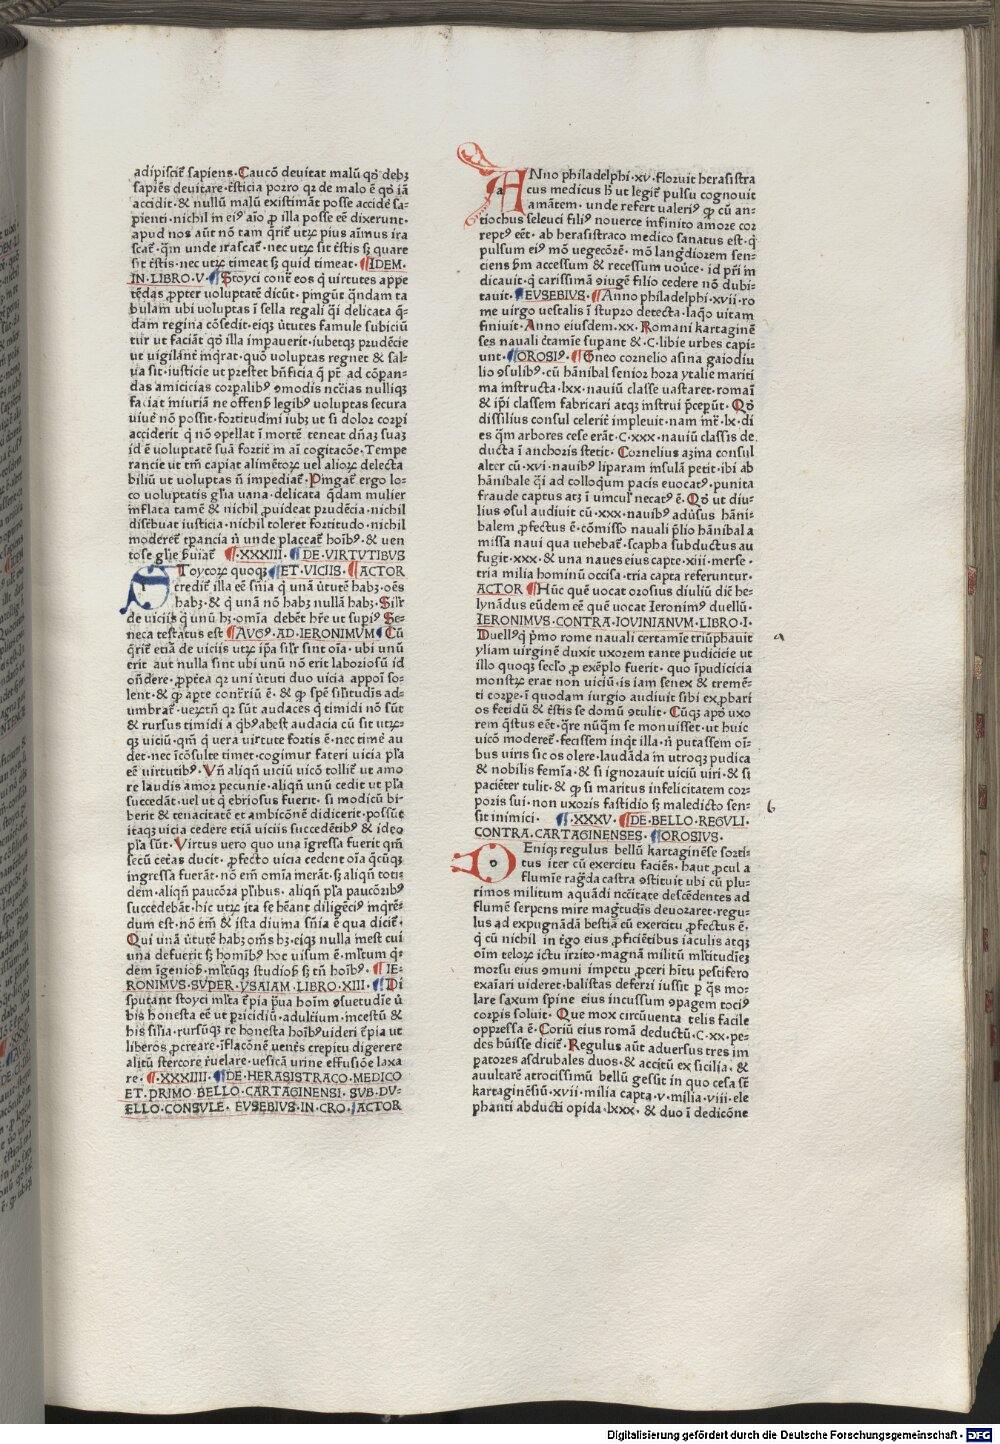 adipiscit̄ sapiens. Caucō deuitat malū qd̄ debꝫ
sapiēs deuitare. t̄sticia porro qꝛ de malo ē qd̄ iā
accidit. & nullū malū existimāt posse accidē sa⸗
pienti. nichil in eiꝰ aīo ꝓ illa posse eē dixerunt.
apud nos aūt nō tam q̄rit̄ utꝝ pius aīmus ira
scat̄. q̄m unde irascat̄. nec utꝝ sit t̄stis sꝫ quare
sit t̄stis. nec utꝝ timeat sꝫ quid timeat. ¶IDEM.
IN.LIBRO.V.¶Stoyci cont̄ eos q̄ uirtutes appe
tēdas ꝓpter uoluptatē dicūt. pingūt q̄ndam ta
bulam ubi uoluptas ī sella regali q̄i delicata q̄⸗
dam regina cōsedit. eiqꝫ ūtutes famule subiciū
tur ut faciāt qd̄ illa impauerit. iubetqꝫ prudēcie
ut uigilāt̄ inq̄rat. quō uoluptas regnet & sal⸗
ua sit. iusticie ut prestet bn̄ficia q̄ pt̄ ad cōpan⸗
das amicicias corpalibꝰ ꝯmodis nccīas nulliqꝫ
faciat iniuriā ne offensꝭ legibꝰ uoluptas secura
uiuē nō possit. fortitudini iubꝫ ut si dolor corpi
acciderit q̄ nō ꝯpellat ī mortē. teneat dn̄aꝫ suaꝫ
id ē uoluptatē suā fortit̄ in aī cogitacōe. Tempe
rancie ut tm̄ capiat alimētoꝝ uel alioꝝ delecta
biliū ut uoluptas n̄ impediat̄. Pingat̄ ergo lo⸗
co uoluptatis gl̄ia uana. delicata q̄dam mulier
inflata tamē & nichil ꝓuideat prudēcia. nichil
distbuat iusticia. nichil toleret fortitudo. nichil
moderet̄ tpancia n̄ unde placeat̄ hoībꝰ. & uen
tose gl̄ie ꝑuiat̄ ¶.XXXIII.¶DE.VIRTVTIBVS
SToycoꝝ quoqꝫ ¶ET.VICIIS.¶ACTOR
tredit̄ illa eē sn̄ia q̄ unā ūtutē habꝫ. oēs
habꝫ. & q̄ unā nō habꝫ nullā habꝫ. Silr̄
de uiciis q̄ unū hꝫ. omīa debēt hr̄e ut supiꝰ Se⸗
neca testatus est ¶AVGꝰ. AD.IERONIMVM ¶Cū
q̄rit̄ etiā de uiciis utꝝ ip̄a silr̄ sint oīa. ubi unū
erit aut nulla sint ubi unū nō erit laboriosū id
on̄dere. ꝓptea qꝛ uni ūtuti duo uicia appoī so⸗
lent. & qꝫ apte cont̄riū ē. & qꝫ spē silitudīs ad⸗
umbrat̄. ueꝝtn̄ qꝛ sūt audaces q̄ timidi nō sūt
& rursus timidi a qbꝰ abest audacia cū sit utꝝ⸗
qꝫ uiciū. qm̄ q̄ uera uirtute fortis ē. nec timē au
det. nec īcōsulte timet. cogimur fateri uicia pl̄a
eē uirtutibꝰ. Vn̄ aliqn̄ uiciū uicō tollit̄ ut amo
re laudis amor pecunie. aliqn̄ unū cedit ut pl̄a
succedāt. uel ut q̄ ebriosus fuerit. si modicū bi⸗
berit & tenacitatē et ambicōnē didicerit. possūt
itaqꝫ uicia cedere etiā uiciis succedētibꝰ & ideo
pl̄a sūt. Virtus uero quo una īgressa fuerit qm̄
secū cetas ducit. ꝓfecto uicia cedent oīa q̄cūqꝫ
ingressa fuerāt. nō em̄ omīa inerāt. sꝫ aliqn̄ toti⸗
dem. aliqn̄ paucōra pl̄ibus. aliqn̄ pl̄a paucōribꝰ
succedebāt. hic utꝝ ita se hēant diligēciꝰ inq̄rē⸗
dum est. nō em̄ & ista diuina sn̄ia ē qua dicit̄.
Qui unā ūtutē habꝫ oms̄ hꝫ. eiqꝫ nulla inest cui
una defuerit sꝫ homībꝰ hoc uisum ē. ml̄tum q̄⸗
dem īgeniosꝭ. ml̄tūqꝫ studiosꝭ sꝫ tn̄ hoībꝰ. ¶IE⸗
RONIMVS.SVPER.YSAIAM.LIBRO.XIII.¶Di
sputant stoyci ml̄ta t̄pia ꝓua hoīm ꝯsuetudīe ū
bis honesta eē ut pricidiū. adulciū. incestū &
his sil̄ia. rursūqꝫ re honesta hoībꝰ uideri t̄pia ut
liberos ꝓcreare. īflacōnē uent̄s crepitu digerere
aliītū stercore r̄uelare. uesicā urine effusiōe laxa
re. ¶.XXXIIII.¶DE.HERASISTRACO.MEDICO
ET.PRIMO.BELLO.CARTAGINENSI.SVB.DV⸗
ELLO.CONSVLE. EVSEBIVS.IN.CRO.¶ACTOR
ANno philadelphi.xv.floruit herasistra
cus medicus hꝭ ut legit̄ pulsu cognouit
amātem. unde refert ualeriꝰ qꝫ cū an⸗
tiochus seleuci filiꝰ nouerce infinito amore cor
reptꝰ eēt. ab herasistraco medico sanatus est. q̄
pulsum eiꝰ mō uegecōrē. mō lanḡdiorem sen⸗
ciens ꝑm accessum & recessum uoūce. id prī in
dicauit. q̄ carissimā ꝯiugē filio cedere nō dubi⸗
tauit. ¶EVSEBIVS.¶Anno philadelphi.xvii.ro
me uirgo uestalis ī stupro detecta. laq̄o uitam
finiuit. Anno eiusdem.xx. Romani kartaginē
ses nauali c̄tamīe supant & .C. libie urbes capi⸗
unt. ¶OROSIꝰ.¶Gneo cornelio asina gaiodiu
lio ꝯsulibꝰ. cū hānibal senior hora ytalie mariti
ma instructa.lxx. nauiū classe uastaret. romaī
& ip̄i classem fabricari atqꝫ instrui p̄cepūt. Qd̄
diislius consul celerit̄ impleuit. nam int̄.lx.di
es q̄m arbores cese erāt.C.xxx.nauiū classis de.
ducta ī anchoris stetit. Cornelius azina consul
alter cū.xvi.nauibꝰ liparam insulā petit. ibi ab
hānibale q̄i ad colloqum pacis euocatꝰ. punica
fraude captus atꝫ ī uinculꝭ necatꝰ ē. Qd̄ ut diu⸗
lius ꝯsul audiuit cū.xxx.nauibꝰ adūsus hāni⸗
balem ꝓfectus ē. cōmisso nauali p̄lio hānibal a
missa naui qua uehebat̄. scapha subductus au
fugit.xxx.& una naues eius capte.xiii.merse.
tria milia hominū occisa. tria capta referuntur.
ACTOR ¶Hūc quē uocat orosius diuliū diē he⸗
lynādus eūdem eē quē uocat Ieronimꝰ duellū.
IERONIMVS.CONTRA.IOVINIANVM.LIBRO.I.
Duellꝰ q̄ pmo rome nauali certamīe triūphauit
yliam uirginē duxit uxorem tante pudicicie ut
illo quoqꝫ secl̄o ꝓ exēplo fuerit. quo īpudicicia
monstꝝ erat non uiciū. is iam senex & tremē⸗
ti corpe. ī quodam iurgio audiuit sibi exꝓbari
os fetidū & t̄stis se domū ꝯtulit. Cūqꝫ apd̄ uxo
rem q̄stus eēt. q̄re nūq̄m se monuisset. ut huic
uicō mederet̄. fecissem inqt illa. n̄ putassem oī⸗
bus uiris sic os olere. laudāda in utroqꝫ pudica
& nobilis femīa. & si ignorauit uiciū uiri. & si
paciēter tulit. & qꝫ si maritus infelicitatem cor⸗
poris sui. non uxoris fastidio sꝫ maledicto sen⸗
sit inimici. ¶.XXXV.¶DE.BELLO.REGVLI.
CONTRA.CARTAGINENSES.¶OROSIVS.
DEniqꝫ regulus bellū kartaginēse sorti⸗
tus iter cū exercitu faciēs. haut ꝓcul a
flumīe rag̃da castra ꝯstituit ubi cū plu⸗
rimos militum aquādi nccītate descēdentes ad
flumē serpens mire mag̃tudīs deuoraret. regu⸗
lus ad expugnādā bestiā cū exercitu ꝓfectus ē.
q̄ cū nichil in t̄go eius ꝓficiētibus iaculis atqꝫ
oīm teloꝝ ictu īrito. magnā militū ml̄titudīeꝫ
morsu eius ꝯmuni impetu ꝓteri hītu pestifero
exaīari uideret. balistas deferri iussit p q̄s mo⸗
lare saxum spine eius incussum ꝯpagem tociꝰ
corpis soluit. Que mox circūuenta telis facile
oppressa ē. Coriū eius romā deductū.C.xx.pe⸗
des hūisse dicit̄. Regulus aūt aduersus tres im
patores asdrubales duos. & accitū ex sicilia. &
auultarē atrocissimū bellū gessit in quo cesa st̄
kartaginēsiū.xvii.milia capta.v.milia.viii.ele
phanti abducti opida.lxxx. & duo ī dedicōne
a
b
Digitalisierung gefördert durch die Deutsche Forschungsgemeinschaft - DFG